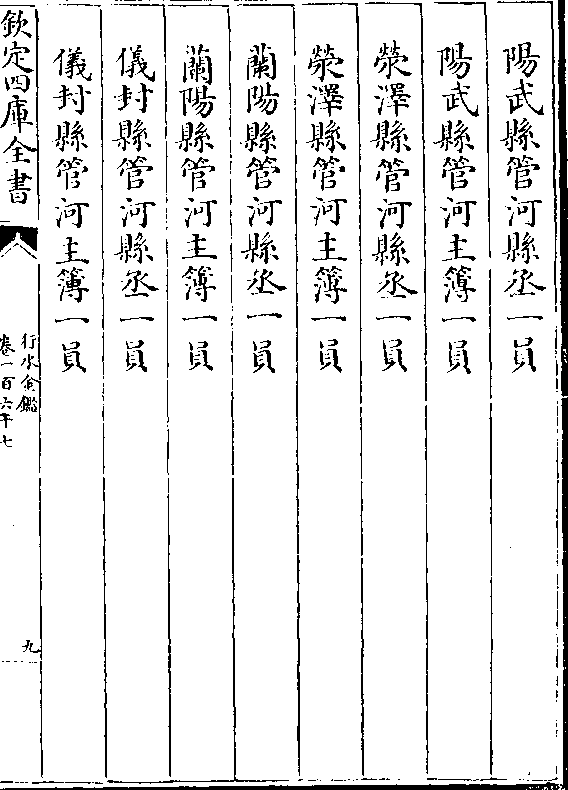 陽武縣管河縣丞一員
陽武縣管河主簿一員
滎澤縣管河縣丞一員
滎澤縣管河主簿一員
蘭陽縣管河縣丞一員
蘭陽縣管河主簿一員
儀封縣管河縣丞一員
儀封縣管河主簿一員
欽定四庫全書
行水金鑑
卷一百六十七
九